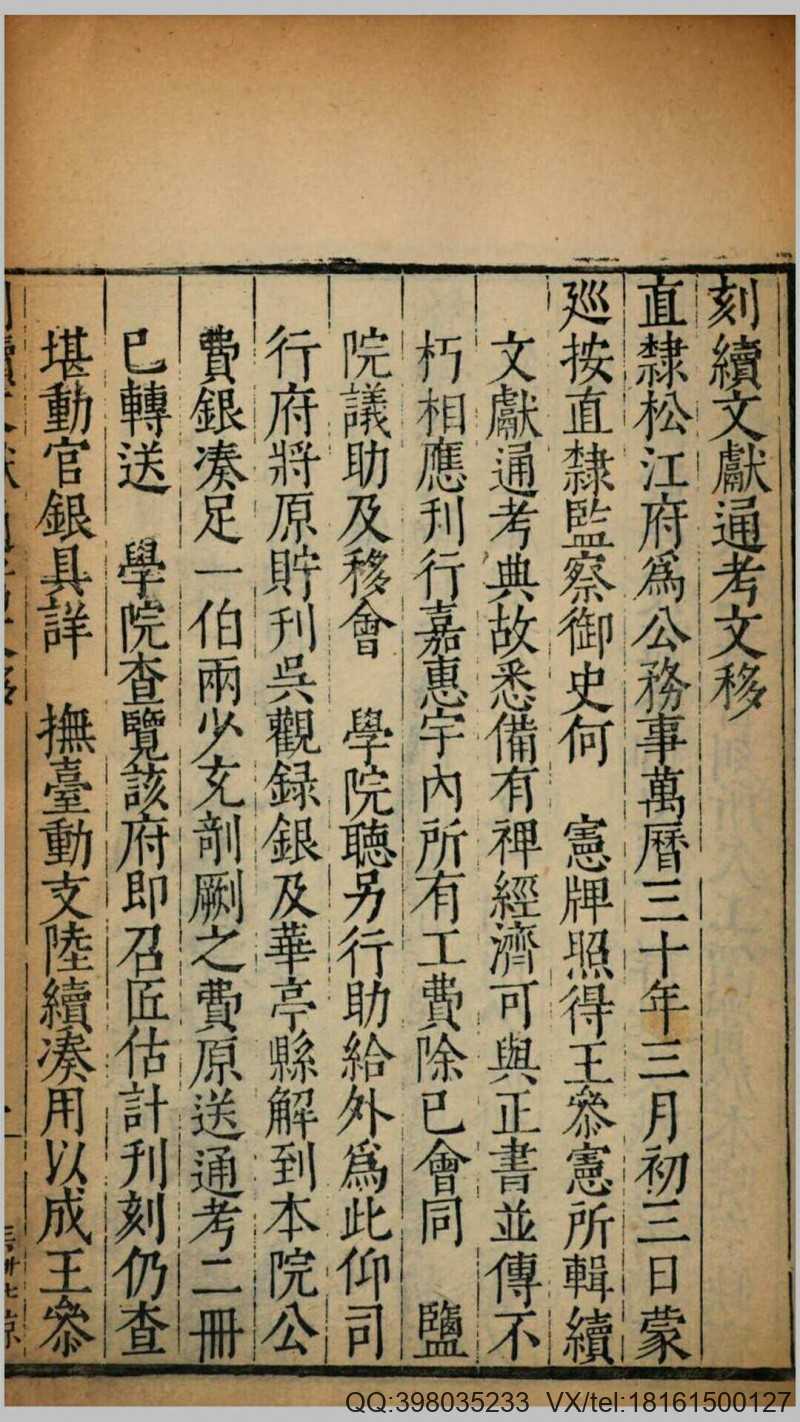 刻續文獻通考文移
直隸松江府為公務事萬曆三十年三月初三日蒙
廵按直隸監察御史何　憲牌照得王叅憲所輯續
文獻通考典故悉備有裨經濟可與正書並傳不
朽相應刋行嘉惠宇內所有工費除已會同　鹽
院議助及移會　學院聽另行助給外為此仰司
行府將原貯刋吳觀録銀及華亭縣解到本院公
費銀凑足一伯兩少充剞劂之費原送通考二冊
已轉送　學院查覽該府即召匠估計刋刻仍查
堪動官銀具詳　撫臺動支陸續凑用以成王叅
QQ:398035233 VX/tel:18161500127